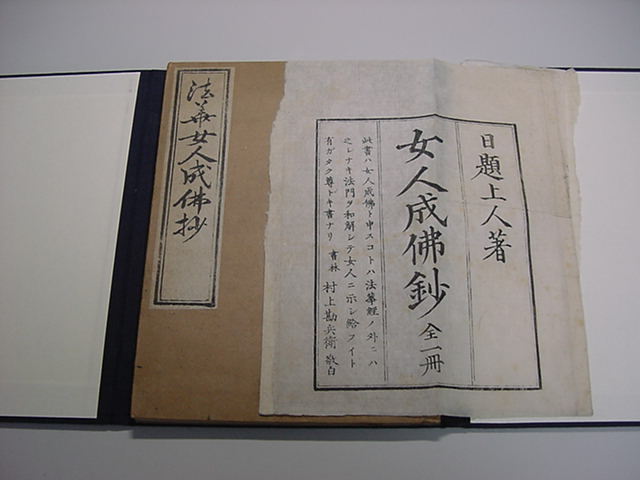 日題上人著
女人成佛鈔 全一冊
此書ハ女人成佛ト申スコトハ法華經ノ外ニハ
之レナキ法門ヲ和解シテ女人ニ示シ給フイト
有ガタク尊トキ書ナリ 書林 村上勘兵衛 敬白
法華女人成佛抄